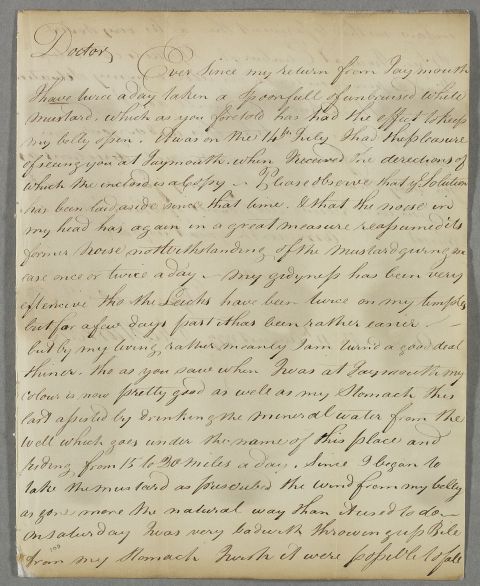 Doctor,
Ever Since my return from Taymouth
I have twice a day taken a Spoonfull of ungrused while
mustard, which as you foretold has had the effect to keep
my belly open. It was on the 14th July I had the pleasure
of seeing you at Taymouth, when I received the derections of
which the inclosed is a Copy ~ Please observe that ye Solution
has been laid aside since that time. & that the noise in
my head has again in a great measure reassumed its
former noise nottwithstanding of the mustard giving me
ease once or twice a day ~ my gidyness has been very
ofencive tho the Leichs have been twice on my temples
but for a few days past it has been rather easier. ~
but by my living rather meanly I am turn'd a good deal
thiner. tho as you saw when I was at Taymouth my
Colour is now pretty good as well as my Stomach this
last assisted by drinking the mineral water from the
Well which goes under the name of this place and
riding from 15 to 20 miles a day. Since I began to
take the mustard as prescrited the wind from my belly
as gone more the natural way than it used to do ~
on Saturday I was very bad with throwing up Bile
from my Stomach I wish it were possible to fall